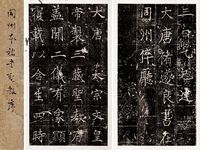 三日乙巳建
大唐褚遂良書在
同州倅廳
大唐太宗文皇
帝製三藏聖教序
蓋聞二儀有象顯
覆載以含生四時
同州本
聖教序